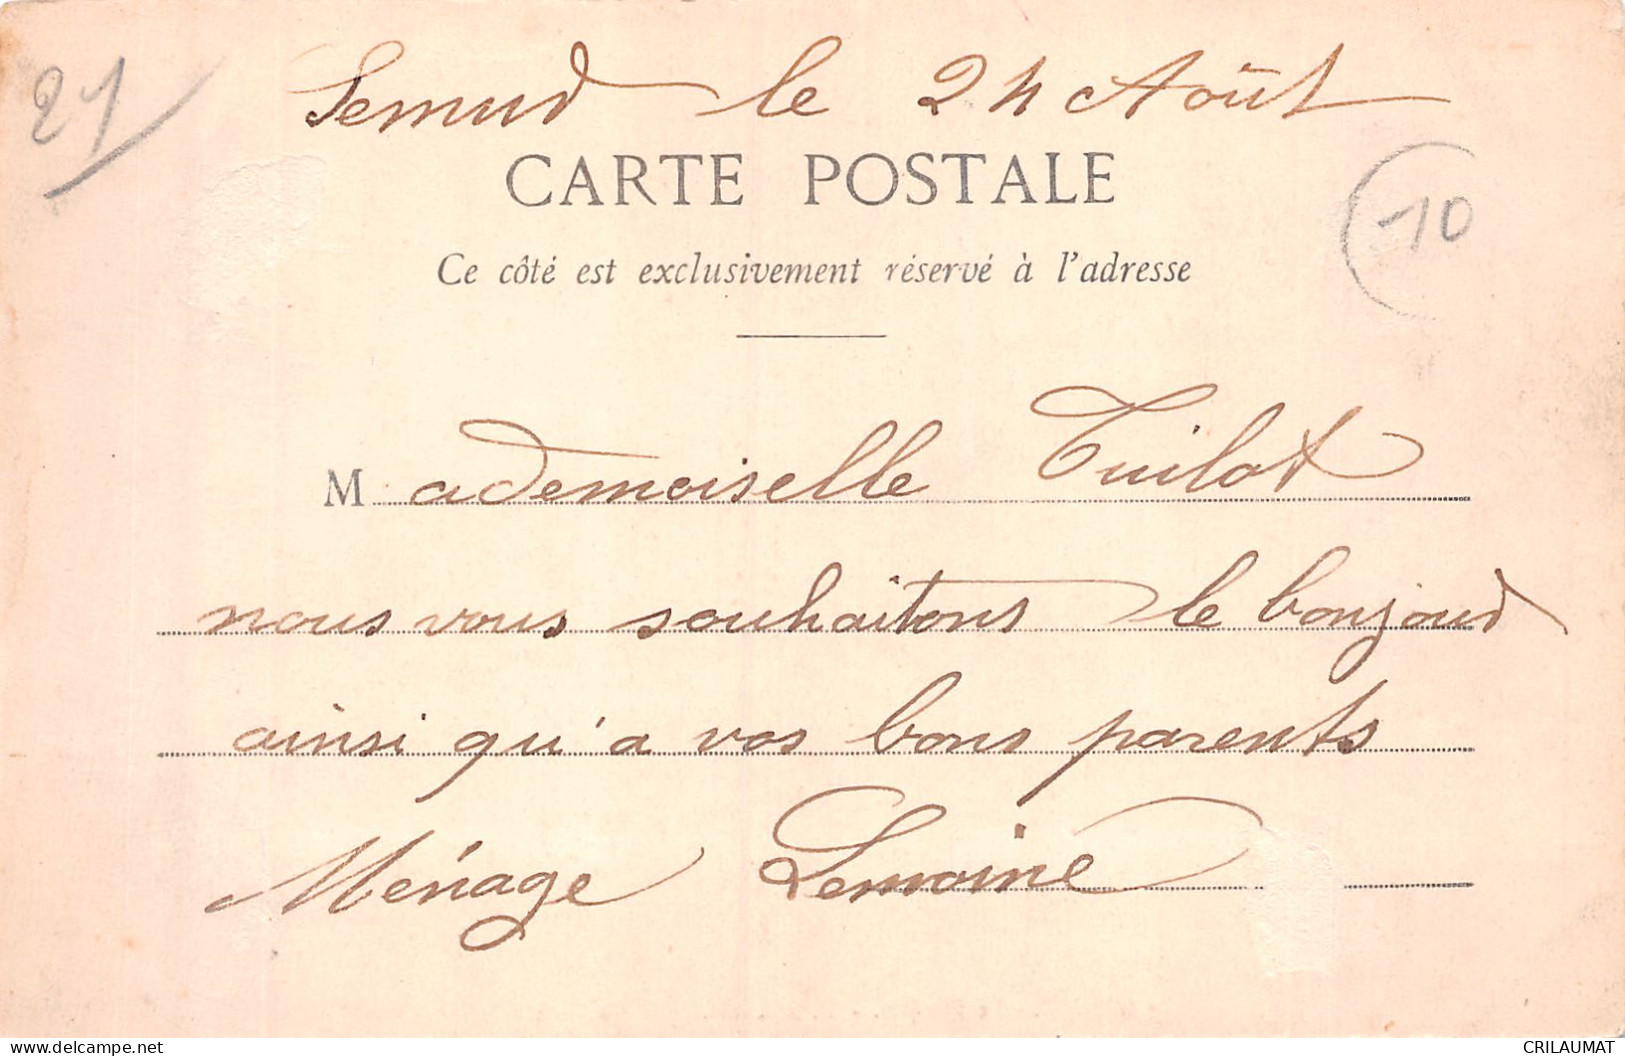 21
Semur le 24 Août
CARTE POSTALE
-10
Ce côté est exclusivement réservé à l'adresse
Mademoiselle Tuilot
nous vous souhaitons le bonjour
ainsi qu'a vos bons parents
Ménage Lemoine
delcampe.net
CRILAUMAT